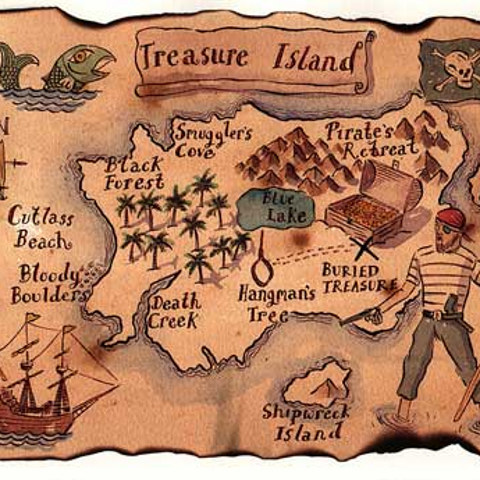 Treasure Island
N
Smuggler's
Cove
Pirate's
Retreat
Black
Forest
Blue
Lake
Cutlass
Beach
Bloody
Boulders
BURIED
TREASURE
Hangman's
Tree
Death
Creek
Shipwreck
Island